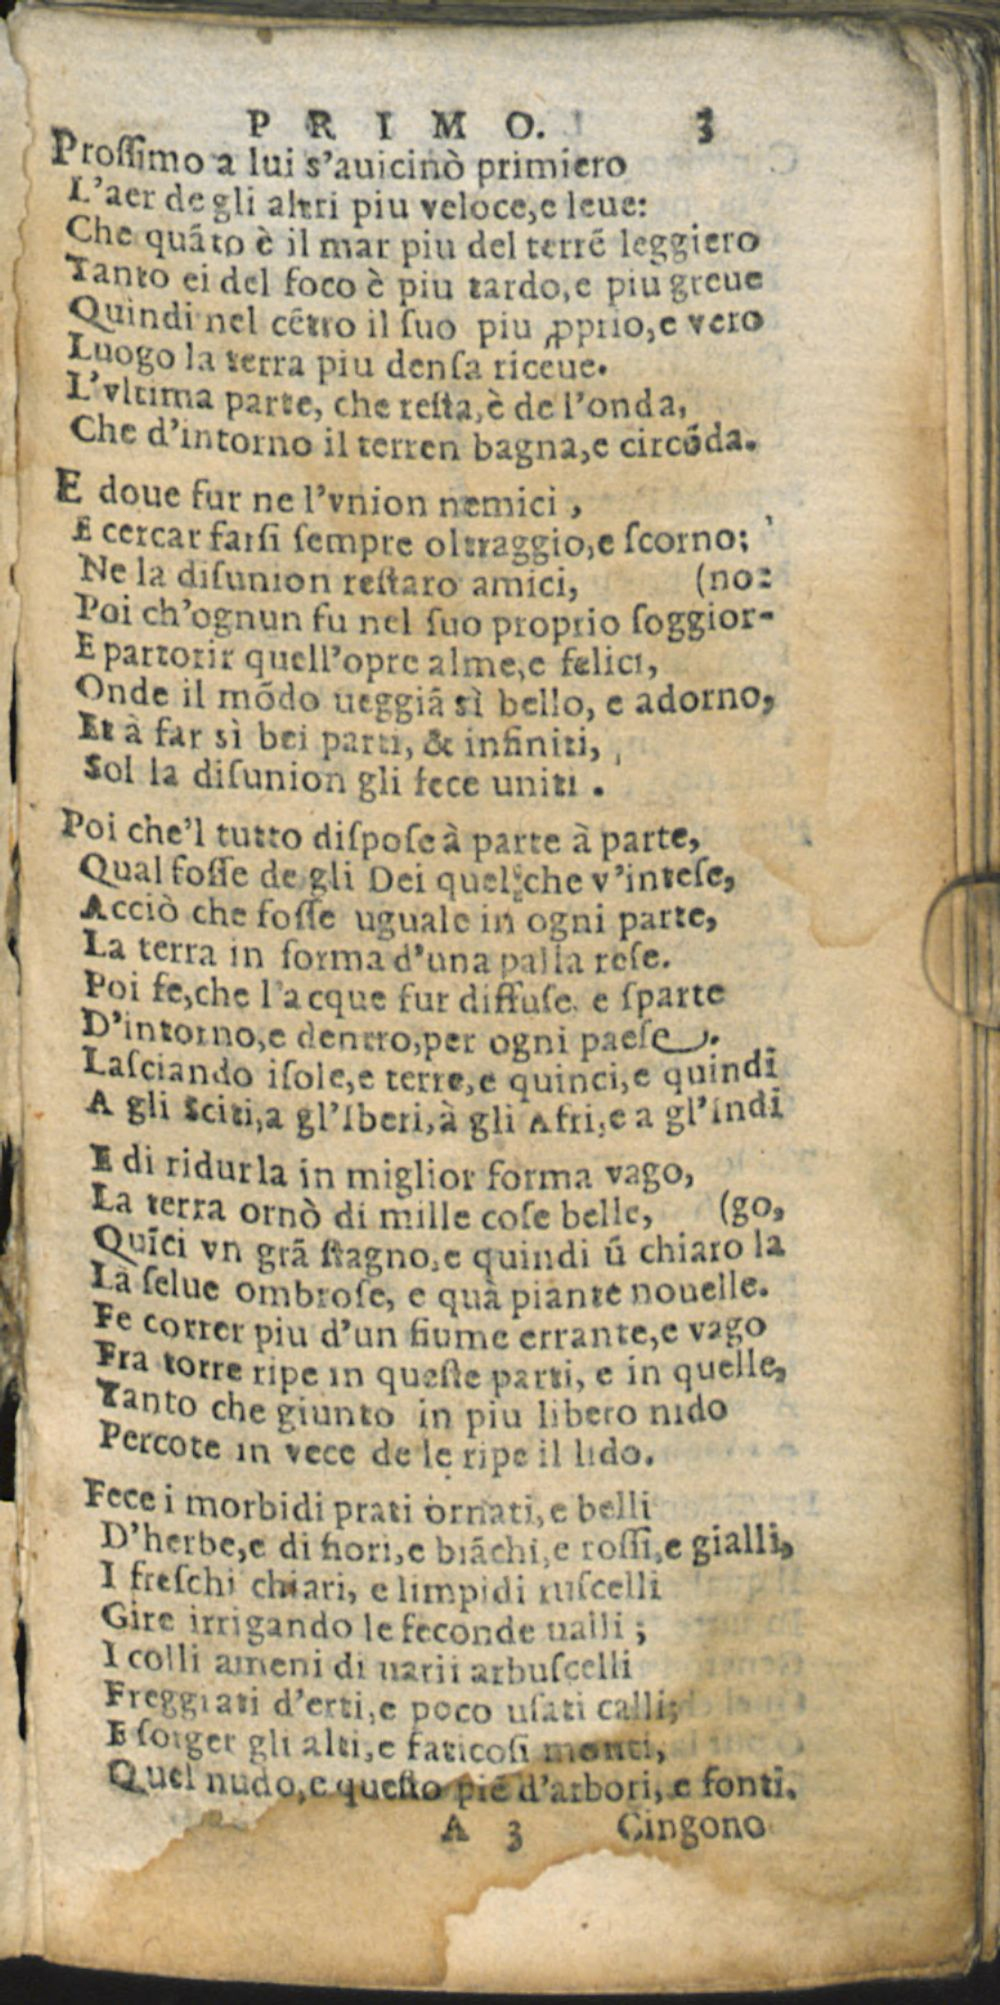 PRIMO. 3
Proſſimo a lui s'auicinò primiero
L'aer de gli altri piu veloce,e leue:
Che quãto è il mar piu del terrẽ leggiero
Tanto ei del foco è piu tardo,e piu greue
Quindi nel cẽtro il ſuo piu ꝓprio,e vero
Luogo la terra piu denſa riceue.
L'vltima parte, che reſta,è de l'onda,
Che d'intorno il terren bagna,e circõda.
E doue fur ne l'vnion nemici,
E cercar farſi ſempre oltraggio,e ſcorno;
Ne la diſunion reſtaro amici, (no:
Poi ch'ognun fu nel ſuo proprio ſoggior-
E partorir quell'opre alme,e felici,
Onde il mõdo ueggiã sì bello, e adorno,
Et à far sì bei parti, & infiniti,
Sol la diſunion gli fece uniti.
Poi che'l tutto diſpoſe à parte à parte,
Qual foſſe de gli Dei quel che v'inteſe,
Acciò che foſſe uguale in ogni parte,
La terra in forma d'una palla reſe.
Poi fe,che l'acque fur diffuſe, e ſparte
D'intorno,e dentro,per ogni paeſe.
Laſciando iſole,e terre,e quinci,e quindi
A gli Sciti,a gl'Iberi,à gli Afri,e a gl'Indi
E di ridurla in miglior forma vago,
La terra ornò di mille coſe belle, (go,
Quĩci vn grã ſtagno,e quindi ũ chiaro la
Là ſelue ombroſe, e quà piante nouelle.
Fe correr piu d'un fiume errante,e vago
Fra torre ripe in queſte parti, e in quelle,
Tanto che giunto in piu libero nido
Percote in vece de le ripe il lido.
Fece i morbidi prati ornati,e belli
D'herbe,e di fiori,e biãchi,e roſſi,e gialli,
I freſchi chiari, e limpidi ruſcelli
Gire irrigando le feconde ualli;
I colli ameni di uarii arbuſcelli
Freggiati d'erti,e poco uſati calli;
E ſorger gli alti,e faticoſi monti,
Quel nudo,e queſto piẽ d'arbori,e fonti.
A 3 Cingono